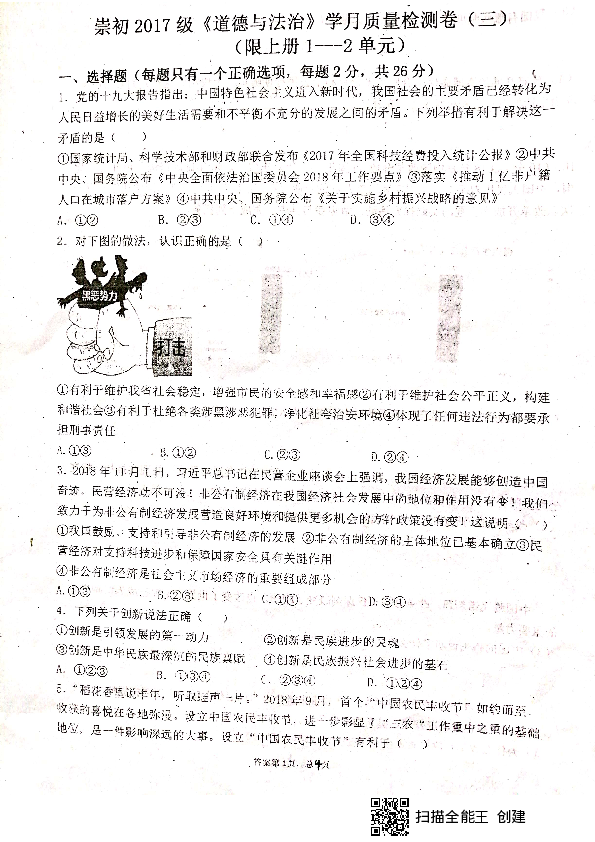 崇初2017级《道德与法治》学月质量检测卷（三）
（限上册1---2单元）
一、选择题（每题只有一个正确选项，每题2分，共26分）
1．党的十九大报告指出：中国特色社会主义进入新时代，我国社会的主要矛盾已经转化为
人民日益增长的美好生活需要和不平衡不充分的发展之间的矛盾。下列举措有利于解决这一
矛盾的是（ ）
①国家统计局、科学技术部和财政部联合发布《2017年全国科技经费投入统计公报》②中共
中央、国务院公布《中央全面依法治国委员会2018年工作要点》③落实《推动1亿非户籍
人口在城市落户方案》④中共中央、国务院公布《关于实施乡村振兴战略的意见》
A．①② B．②③ C．①④ D．③④
2．对下图的做法，认识正确的是（ ）
黑恶势力
打击
①有利于维护我省社会稳定，增强市民的安全感和幸福感②有利于维护社会公平正义，构建
和谐社会③有利于杜绝各类涉黑涉恶犯罪，净化社会治安环境④体现了任何违法行为都要承
担刑事责任
A.①③ B.①② C.②③ D.②④
3．2018年11月1日，习近平总书记在民营企业座谈会上强调，我国经济发展能够创造中国
奇迹，民营经济功不可没！非公有制经济在我国经济社会发展中的地位和作用没有变！我们
致力于为非公有制经济发展营造良好环境和提供更多机会的方针政策没有变！这说明（ ）
①我国鼓励、支持和引导非公有制经济的发展 ②非公有制经济的主体地位已基本确立③民
营经济对支持科技进步和保障国家安全具有关键作用
④非公有制经济是社会主义市场经济的重要组成部分
A.①② B.②③ C.①④ D.③④
4．下列关于创新说法正确（ ）
①创新是引领发展的第一动力 ②创新是民族进步的灵魂
③创新是中华民族最深沉的民族禀赋 ④创新是民族振兴社会进步的基石
A．①②③ B．①③④ C．②③④ D．①②④
5．“稻花香里说丰年，听取蛙声一片。”2018年9月，首个“中国农民丰收节”如约而至，
收获的喜悦在各地弥漫。设立中国农民丰收节，进一步彰显了“三农”工作重中之重的基础
地位，是一件影响深远的大事。设立“中国农民丰收节”有利于（ ）
答案第1页，总4页
扫描全能王 创建